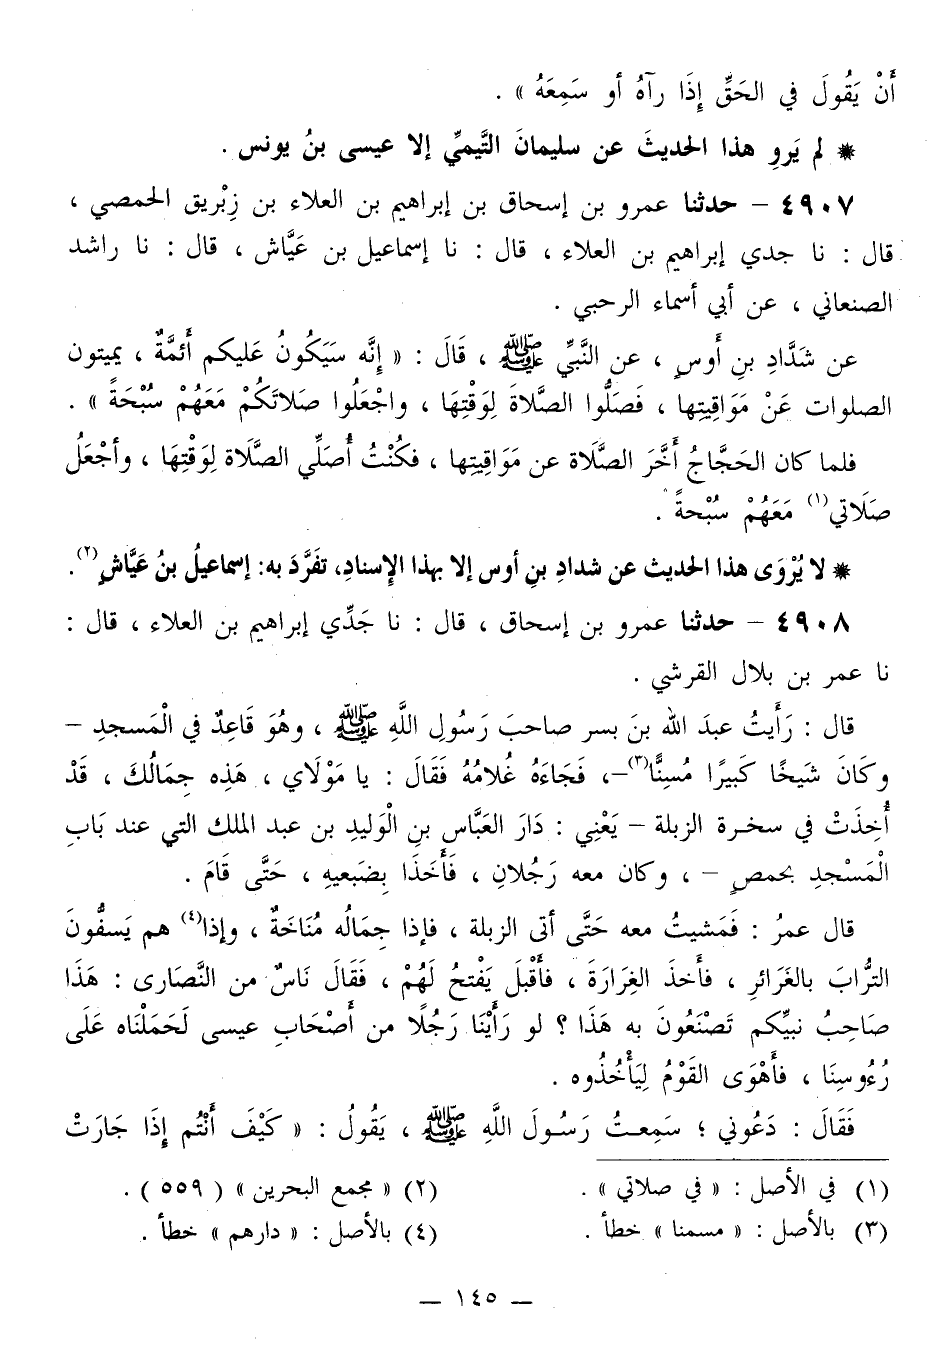 أَنْ يَقُولَ في الحَقِّ إِذَا رآهُ أو سَمِعَهُ » .
* لم يَروِ هذا الحديثَ عن سليمانَ التَّيميِّ إلا عيسى بنُ يونس .
٤٩٠٧ – حدثنا عمرو بن إسحاق بن إبراهيم بن العلاء بن زِبْريق الحمصي ،
قال : نا جدي إبراهيم بن العلاء ، قال : نا إسماعيل بن عَيَّاش ، قال : نا راشد
الصنعاني ، عن أبي أسماء الرحبي .
عن شَدَّادِ بنِ أَوسٍ ، عن النَّبيِّ ﷺ ، قَالَ : « إِنَّه سَيَكُونُ عَليكم أَئمَّةٌ ، يميتون
الصلوات عَنْ مَوَاقِيتِها ، فَصَلُّوا الصَّلاةَ لِوَقْتِهَا ، واجْعَلُوا صَلاتَكُمْ مَعَهُمْ سُبْحَةً » .
فلما كان الحَجَّاجُ أَخَّرَ الصَّلاة عن مَوَاقِيتِها ، فكُنْتُ أُصَلِّي الصَّلاة لِوَقْتِهَا ، وأجْعَلُ
صَلَاتي(١) مَعَهُمْ سُبْحةً .
* لا يُرْوَى هذا الحديث عن شدادِ بنِ أوس إلا بهذا الإِسنادِ، تفَرَّدَ به: إسماعيلُ بنُ عَيَّاشٍ(٢).
٤٩٠٨ – حدثنا عمرو بن إسحاق ، قال : نا جَدِّي إبراهيم بن العلاء ، قال :
نا عمر بن بلال القرشي .
قال : رَأَيتُ عبدَ الله بنَ بسر صاحبَ رَسُولِ اللَّهِ ﷺ ، وهُوَ قَاعِدٌ في الْمَسجدِ –
وكَانَ شَيخًا كَبيرًا مُسِنًّا(٣)–، فَجَاءَهُ غُلامُهُ فَقَالَ : يا مَوْلَاي ، هَذِه جِمَالُكَ ، قَدْ
أُخِذَتْ في سخرة الزبلة – يَعْنِي : دَارَ العَبَّاسِ بنِ الْوَليدِ بن عبد الملك التي عند بَابِ
الْمَسْجدِ بحمصٍ – ، وكان معه رَجُلانِ ، فَأَخَذَا بِضَبعيهِ ، حَتَّى قَامَ .
قال عمرُ : فَمَشيتُ معه حَتَّى أتى الزبلة ، فإذا جِمَالُه مُنَاخَةٌ ، وإذا(٤) هم يَسفُّونَ
التُّرابَ بالغَرَائرِ ، فأَخذَ الغِرَارَةَ ، فأَقْبَلَ يَفْتحُ لَهُمْ ، فَقَالَ نَاسٌ من النَّصَارى : هَذَا
صَاحِبُ نبيِّكم تَصْنَعُونَ به هَذَا ؟ لو رَأَيْنَا رَجُلًا من أَصْحَابِ عيسى لَحَمَلْنَاه عَلَى
رُءُوسِنَا ، فأَهْوَى القَوْمُ لِيَأْخُذُوه .
فَقَالَ : دَعُوني ؛ سَمِعتُ رَسُولَ اللَّهِ ﷺ ، يَقُولُ : « كَيْفَ أَنْتُم إِذَا جَارَتْ
(١) في الأصل : « في صلاتي » .
(٢) « مجمع البحرين » ( ٥٥٩ ) .
(٣) بالأصل : « مسمنا » خطأ .
(٤) بالأصل : « دارهم » خطأ .
– ١٤٥ –